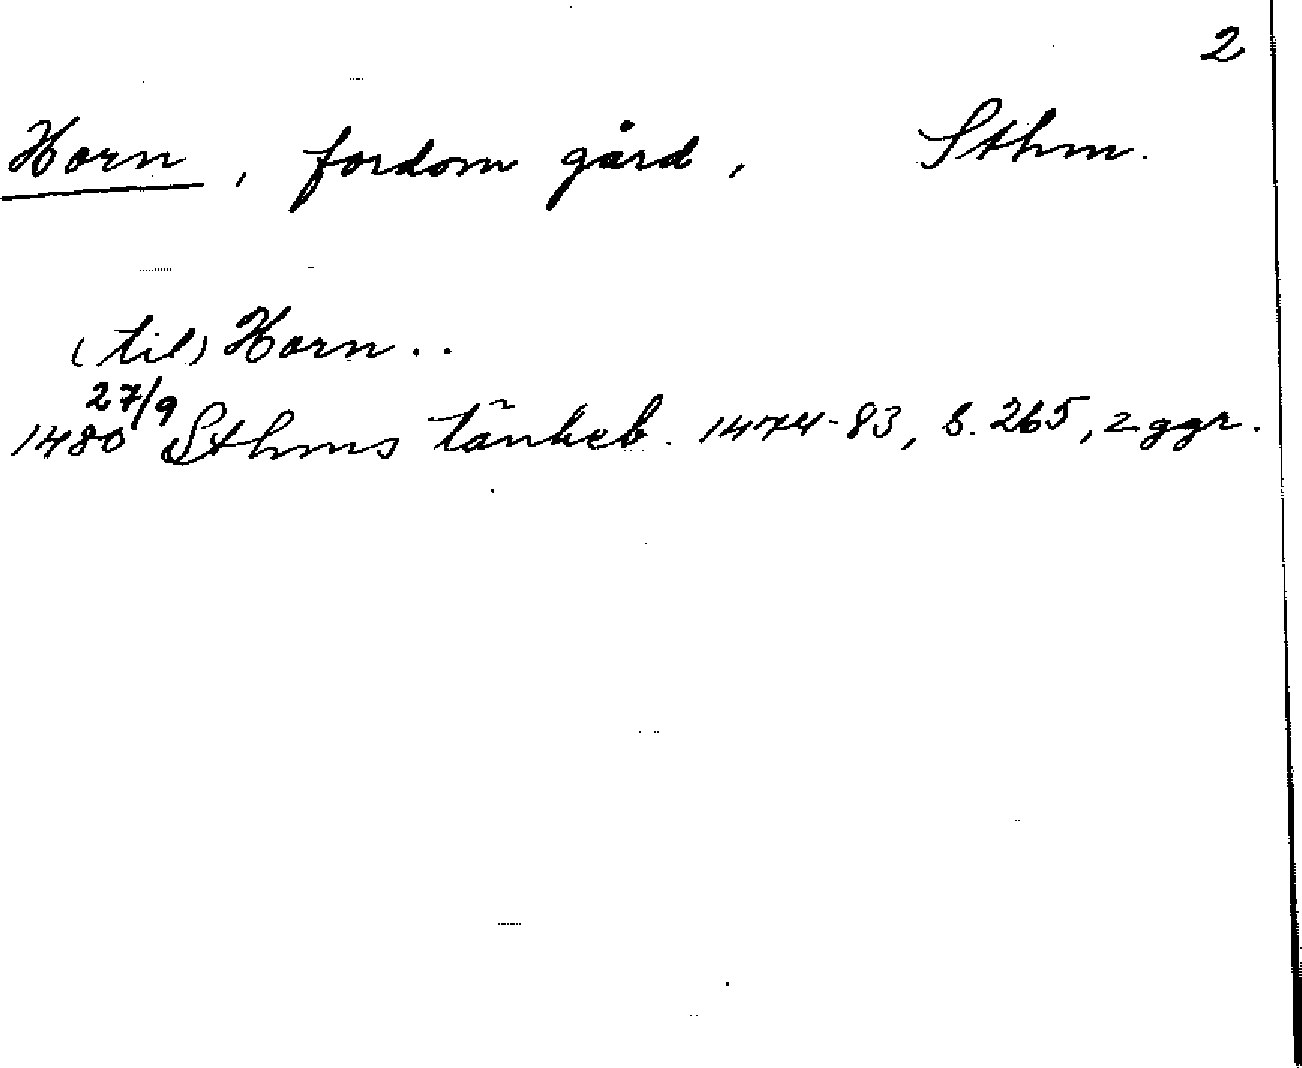 2
Horn, fordom gård, Sthm.
(til) Horn..
1480 27/9 Sthms tänkeb. 1474-83, s. 265, 2 ggr.